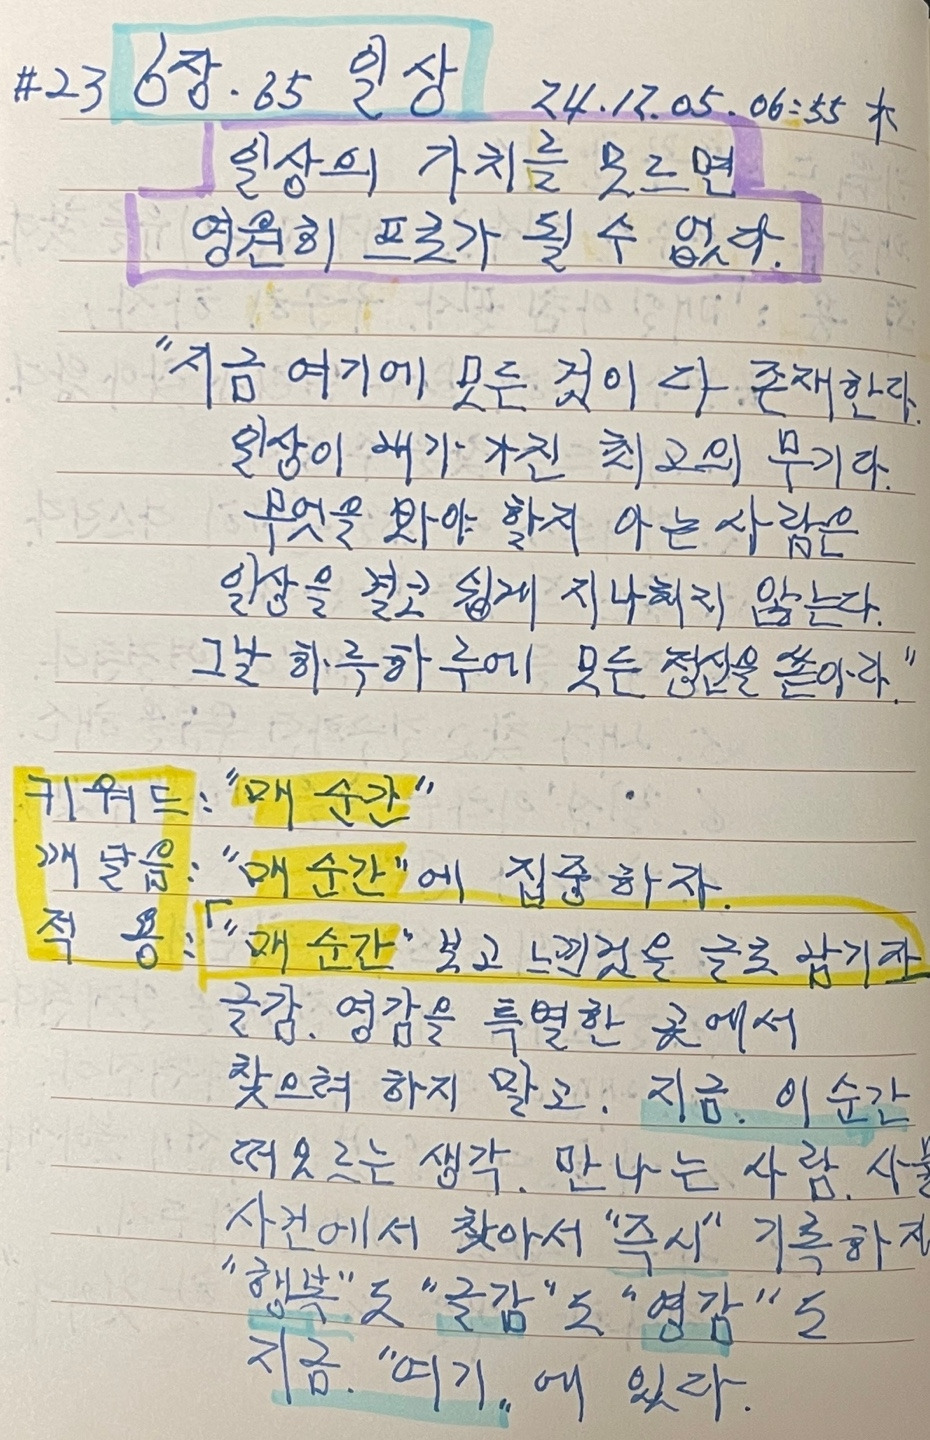 #23 6장. 65 일상 24.12.05.06:55 木
일상의 가치를 모르면
영원히 프로가 될 수 없다.
"지금 여기에 모든 것이 다 존재한다.
일상이 내가 가진 최고의 무기다.
무엇을 봐야 할지 아는 사람은
일상을 결코 쉽게 지나치지 않는다.
그날 하루하루에 모든 정신을 쏟아라."
키워드: "매 순간"
깨달음: "매 순간"에 집중하자.
적 용: 「"매 순간" 보고 느낀것을 글로 남기자
글감. 영감을 특별한 곳에서
찾으려 하지 말고. 지금. 이 순간
떠오르는 생각. 만나는 사람. 사물
사건에서 찾아서 "즉시" 기록하자
"행복"도 "글감"도 "영감"도
지금. "여기" 에 있다.